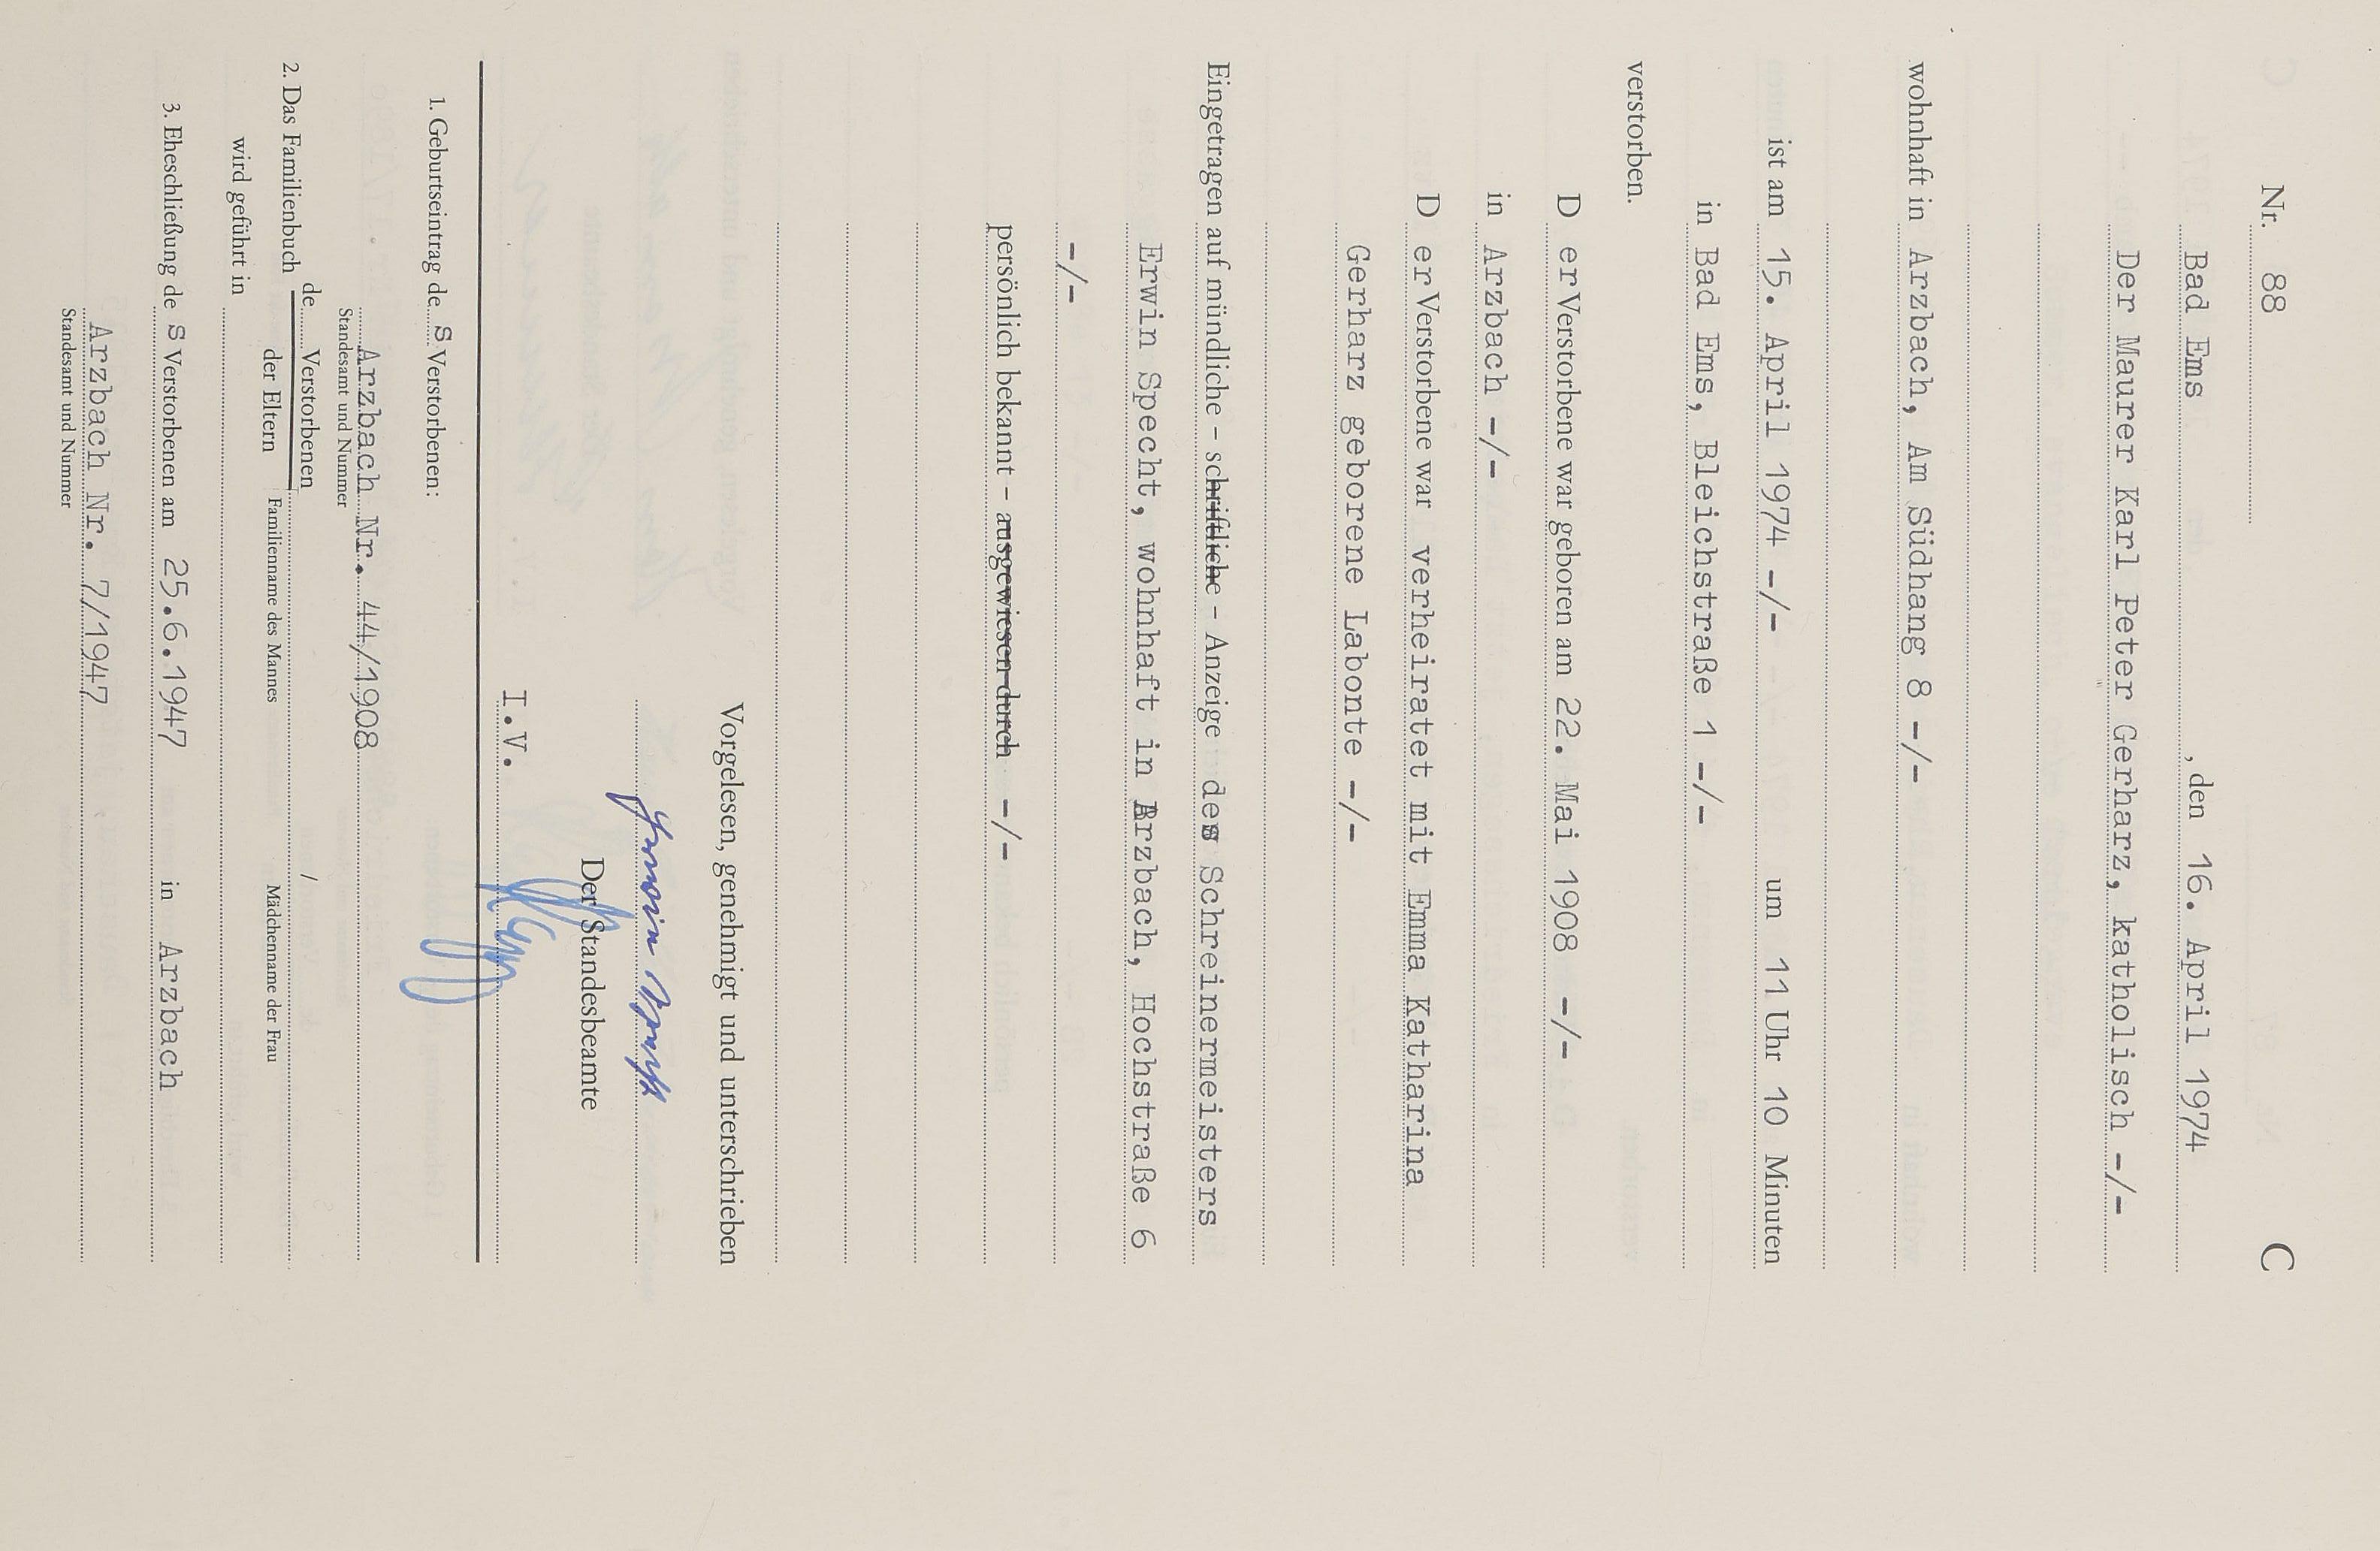 Nr. 88 C
Bad Ems, den 16. April 1974
Der Maurer Karl Peter Gerharz, katholisch -/-
wohnhaft in Arzbach, Am Südhang 8 -/-
ist am 15. April 1974 -/- um 11 Uhr 10 Minuten
in Bad Ems, Bleichstraße 1 -/-
verstorben.
D er Verstorbene war geboren am 22. Mai 1908 -/-
in Arzbach -/-
D er Verstorbene war verheiratet mit Emma Katharina
Gerharz geborene Labonte -/-
Eingetragen auf mündliche - schriftliche - Anzeige des Schreinermeisters
Erwin Specht, wohnhaft in Arzbach, Hochstraße 6
-/-
persönlich bekannt - ausgewiesen durch -/-
Vorgelesen, genehmigt und unterschrieben
Erwin Specht
Der Standesbeamte
I.V.
1. Geburtseintrag de s Verstorbenen:
Arzbach Nr. 44/1908
Standesamt und Nummer
2. Das Familienbuch de Verstorbenen /
der Eltern Familienname des Mannes Mädchenname der Frau
wird geführt in
3. Eheschließung de s Verstorbenen am 25.6.1947 in Arzbach
Arzbach Nr. 7/1947
Standesamt und Nummer